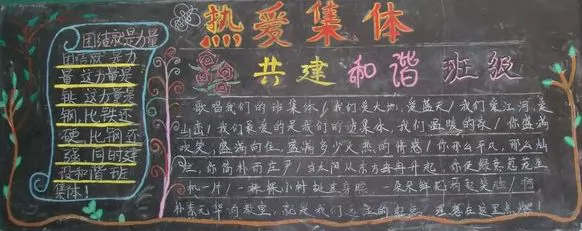 热爱集体
共建和谐班级
团结就是力量
团结就是力
量这力量是
铁这力量是
钢,比铁还
硬,比钢还
强,同时建
设和谐班
集体!
歌唱我们的班集体!我们爱大地,爱蓝天!我们爱江河,爱
山峦!我们最爱的是我们的班集体,我们温暖的家!你盛满
欢笑,盛满向往,盛满多少火热的情感!你那么平凡,那么灿
烂,你简朴而庄严!当太阳从东方冉冉升起,你使绿意
机一片!一棵棵小树挺起身躯 一朵朵鲜花 起笑脸!
朴素无华的教室,就是我们远征的起点 理想在这里点燃!